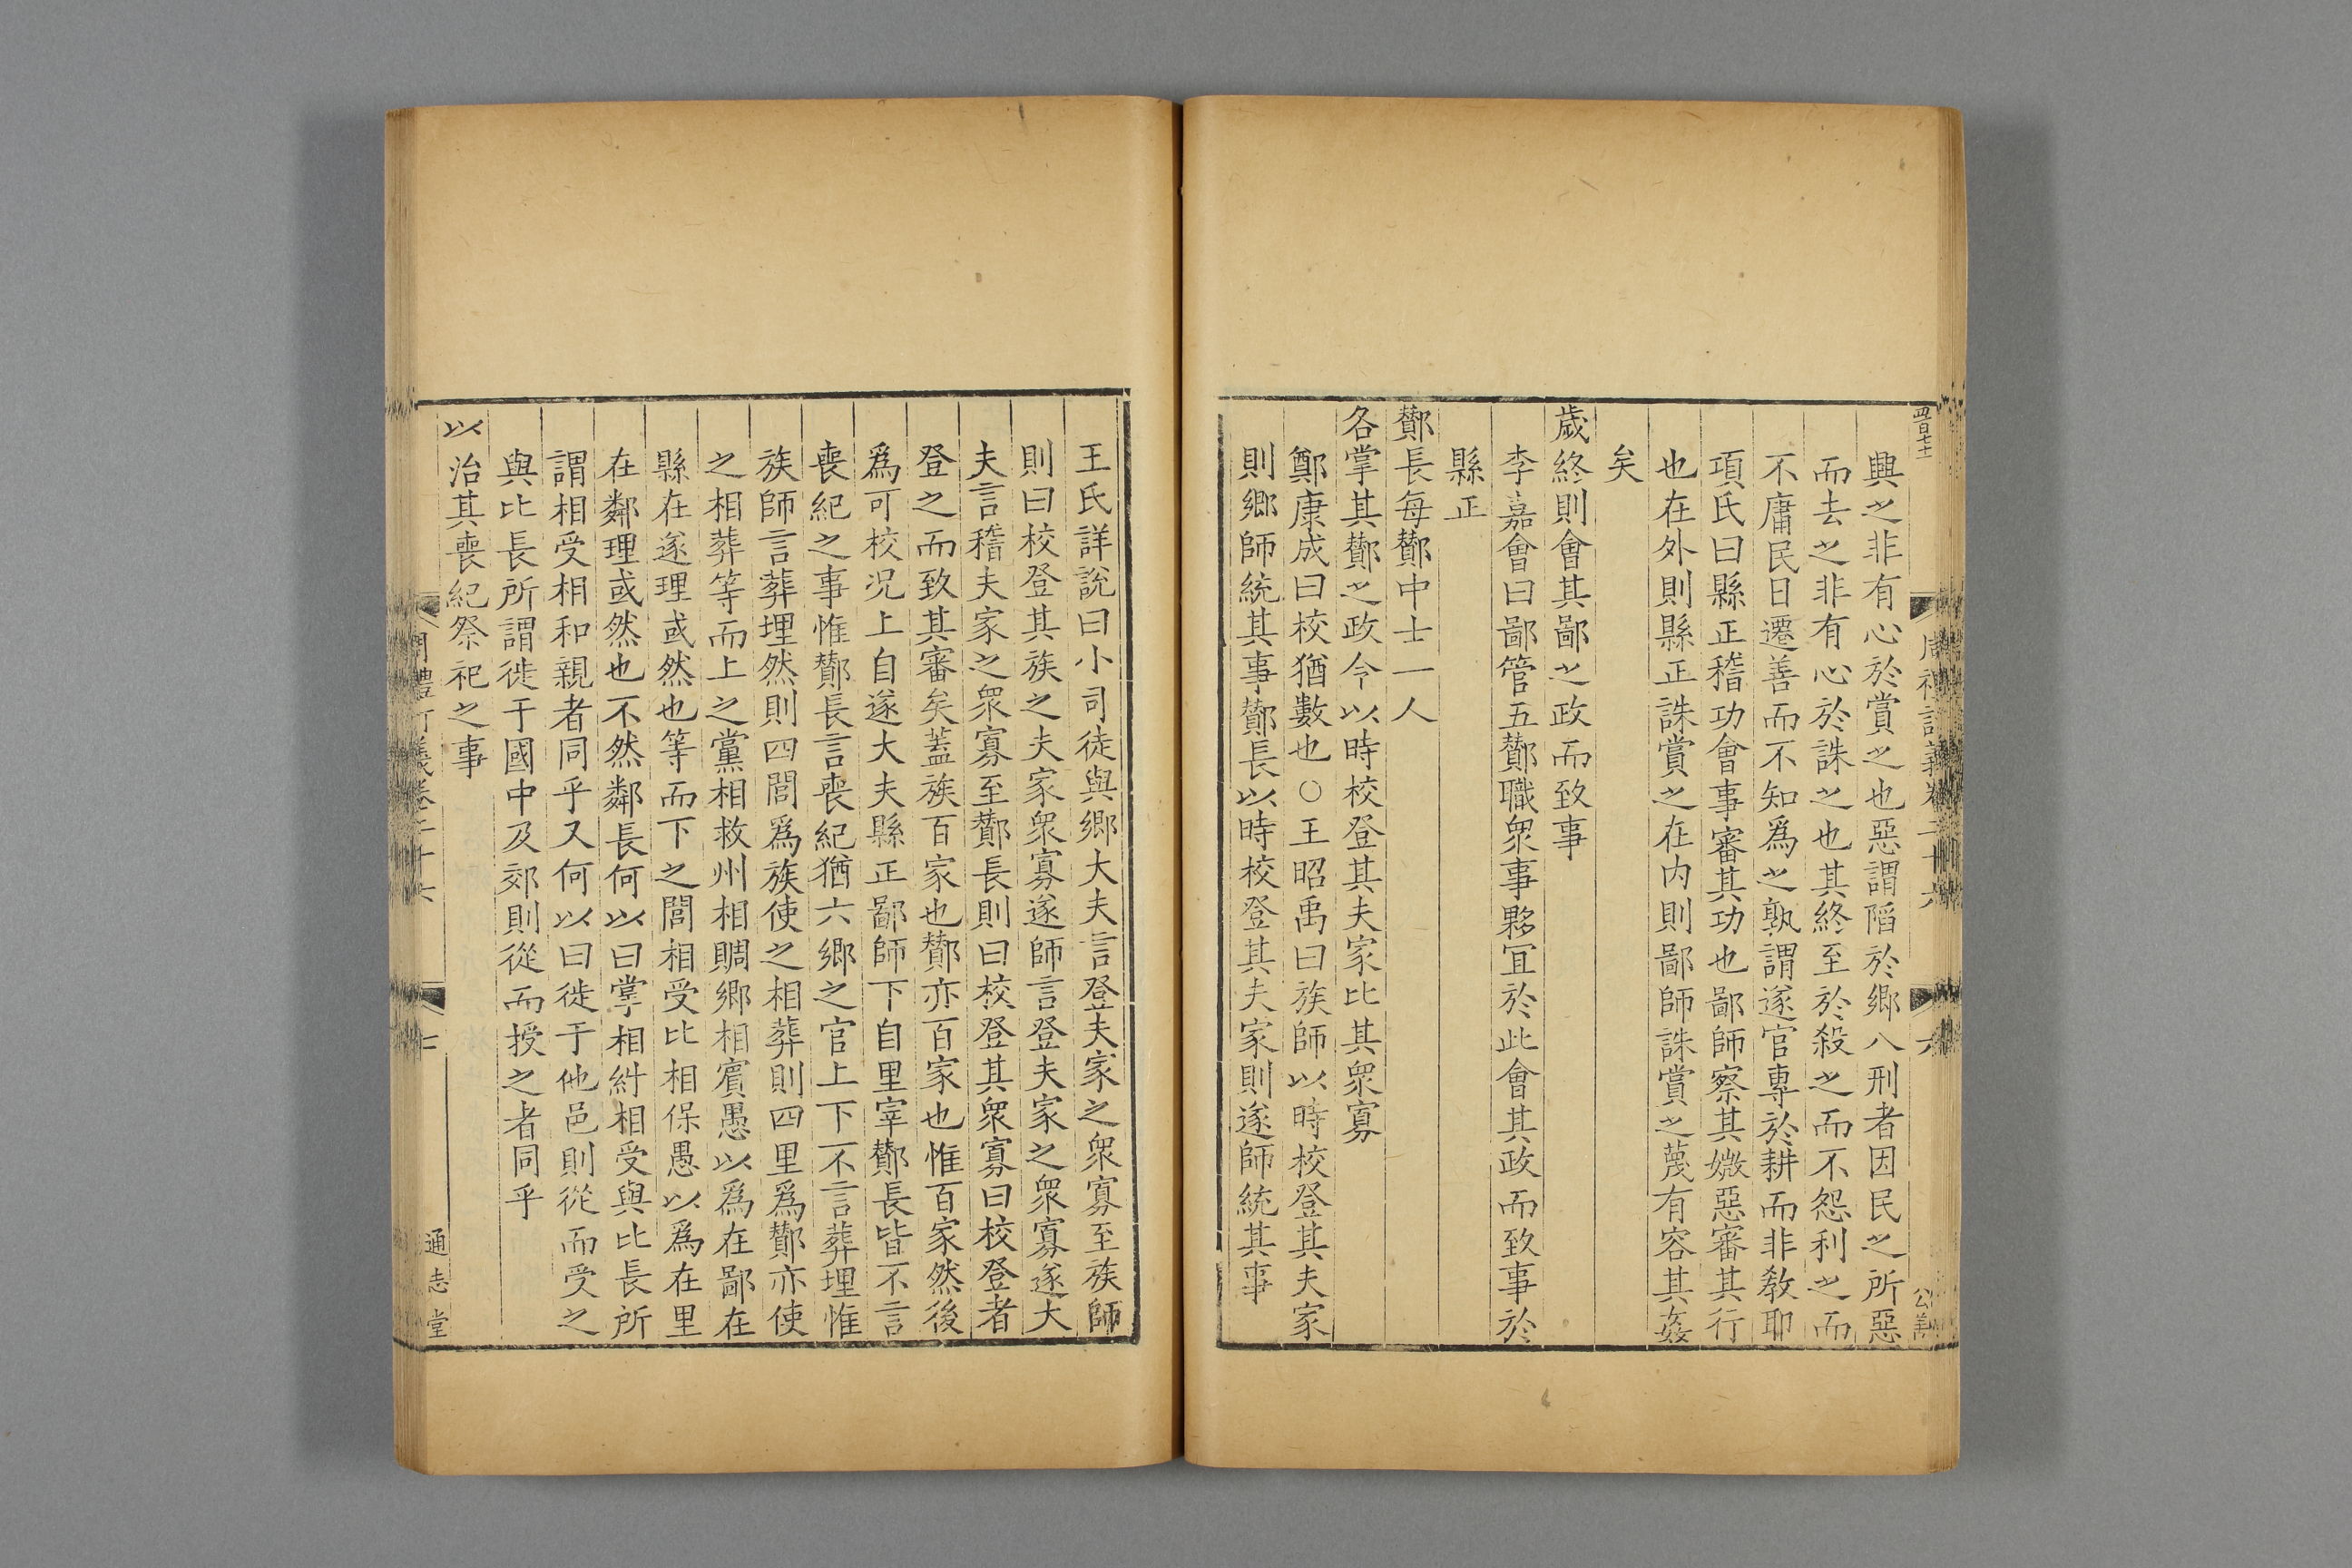 興之非有心於賞之也惡謂䧟於鄉八刑者因民之所惡
而去之非有心於誅之也其終至於殺之而不怨利之而
不庸民日遷善而不知爲之孰謂遂官專於耕而非敎耶
項氏曰縣正稽功會事審其功也鄙師察其媺惡審其行
也在外則縣正誅賞之在内則鄙師誅賞之蔑有容其姦
矣
歲終則會其鄙之政而致事
李嘉會曰鄙管五酇職衆事夥冝於此會其政而致事於
縣正
酇長每酇中士一人
各掌其酇之政令以時校登其夫家比其衆寡
鄭康成曰校猶數也○王昭禹曰族師以時校登其夫家
則鄉師統其事酇長以時校登其夫家則遂師統其事
王氏詳說曰小司徒與鄉大夫言登夫家之衆寡至族師
則曰校登其族之夫家衆寡遂師言登夫家之衆寡遂大
夫言稽夫家之衆寡至酇長則曰校登其衆寡曰校登者
登之而致其審矣葢族百家也酇亦百家也惟百家然後
爲可校况上自遂大夫縣正鄙師下自里宰酇長皆不言
喪紀之事惟酇長言喪紀猶六鄉之官上下不言葬埋惟
族師言葬埋然則四閭爲族使之相葬則四里爲酇亦使
之相葬等而上之黨相救州相賙鄉相賔愚以爲在鄙在
縣在遂理或然也等而下之閭相受比相保愚以爲在里
在鄰理或然也不然鄰長何以曰掌相糾相受與比長所
謂相受相和親者同乎又何以曰徙于他邑則從而受之
與比長所謂徙于國中及郊則從而授之者同乎
以治其喪紀祭祀之事
通志堂